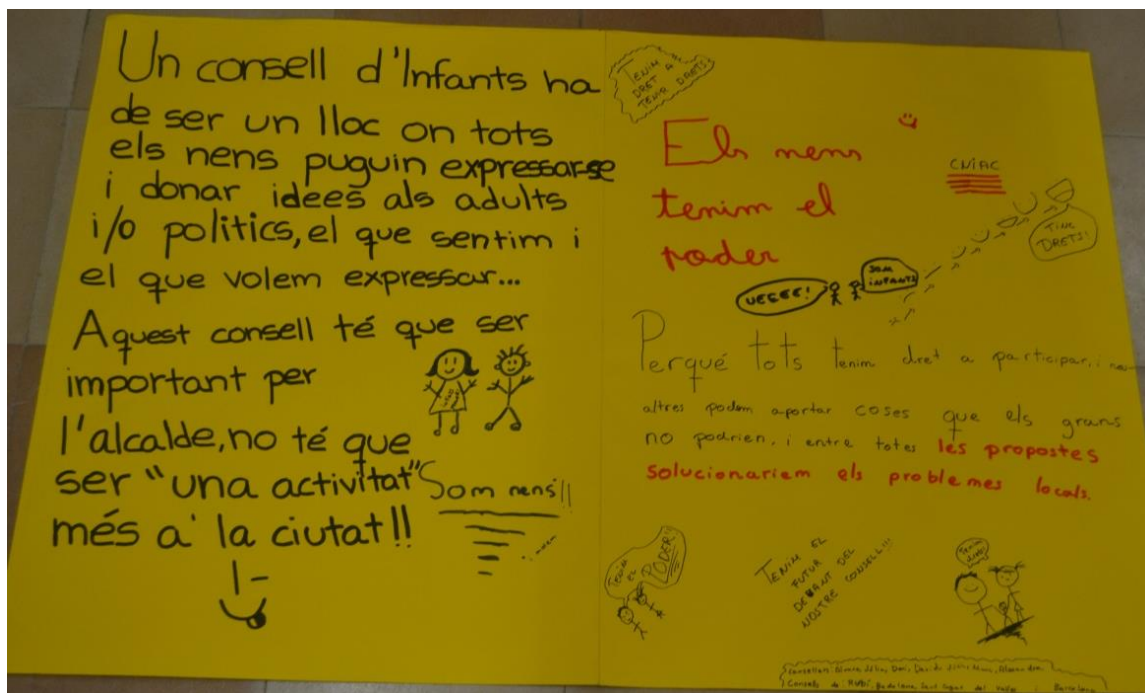 Un consell d'Infants ha
de ser un lloc on tots
els nens puguin expressar-se
i donar idees als adults
i/o politics, el que sentim i
el que volem expressar...
Aquest consell té que ser
important per
l'alcalde, no té que
ser "una activitat"
més a la ciutat!!
Som nens!!
TENIM
DRET A
TENIR DRETS!
Els nens
tenim el
poder
CNIAC
TINC
DRETS!
UEEEE!
SOM
INFANTS
Perqué tots tenim dret a participar, i nos
altres podem aportar coses que els grans
no podrien, i entre totes les propostes
solucionariem els problemes locals.
TENIM
EL
PODER
TENIM EL
FUTUR
DEVANT DEL
NOSTRE CONSELL!!!
Tenim
drets
Consellers
Consells de: Rubí, Badalona, Sant Cugat del Vallès i Barcelona